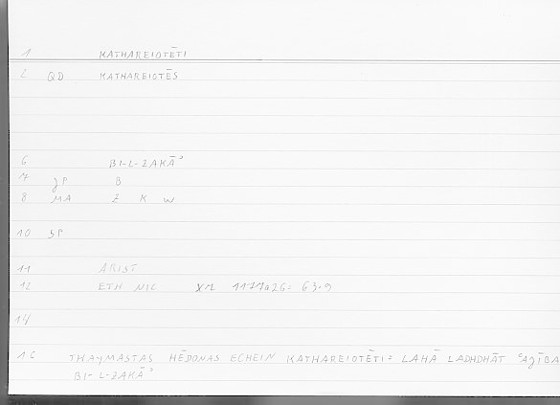 1 KATHAREIOTĒTI
2 QD KATHAREIOTĒS
6 BI-L-ZAKĀʾ
7 JP B
8 MA Z K W
10 SP
11 ARIST
12 ETH NIC X7 1177A26 = 63.9
14
16 THAYMASTAS HĒDONAS ECHEIN KATHAREIOTĒTI = LAHĀ LADHDHĀT ʿAJĪBA
BI-L-ZAKĀʾ